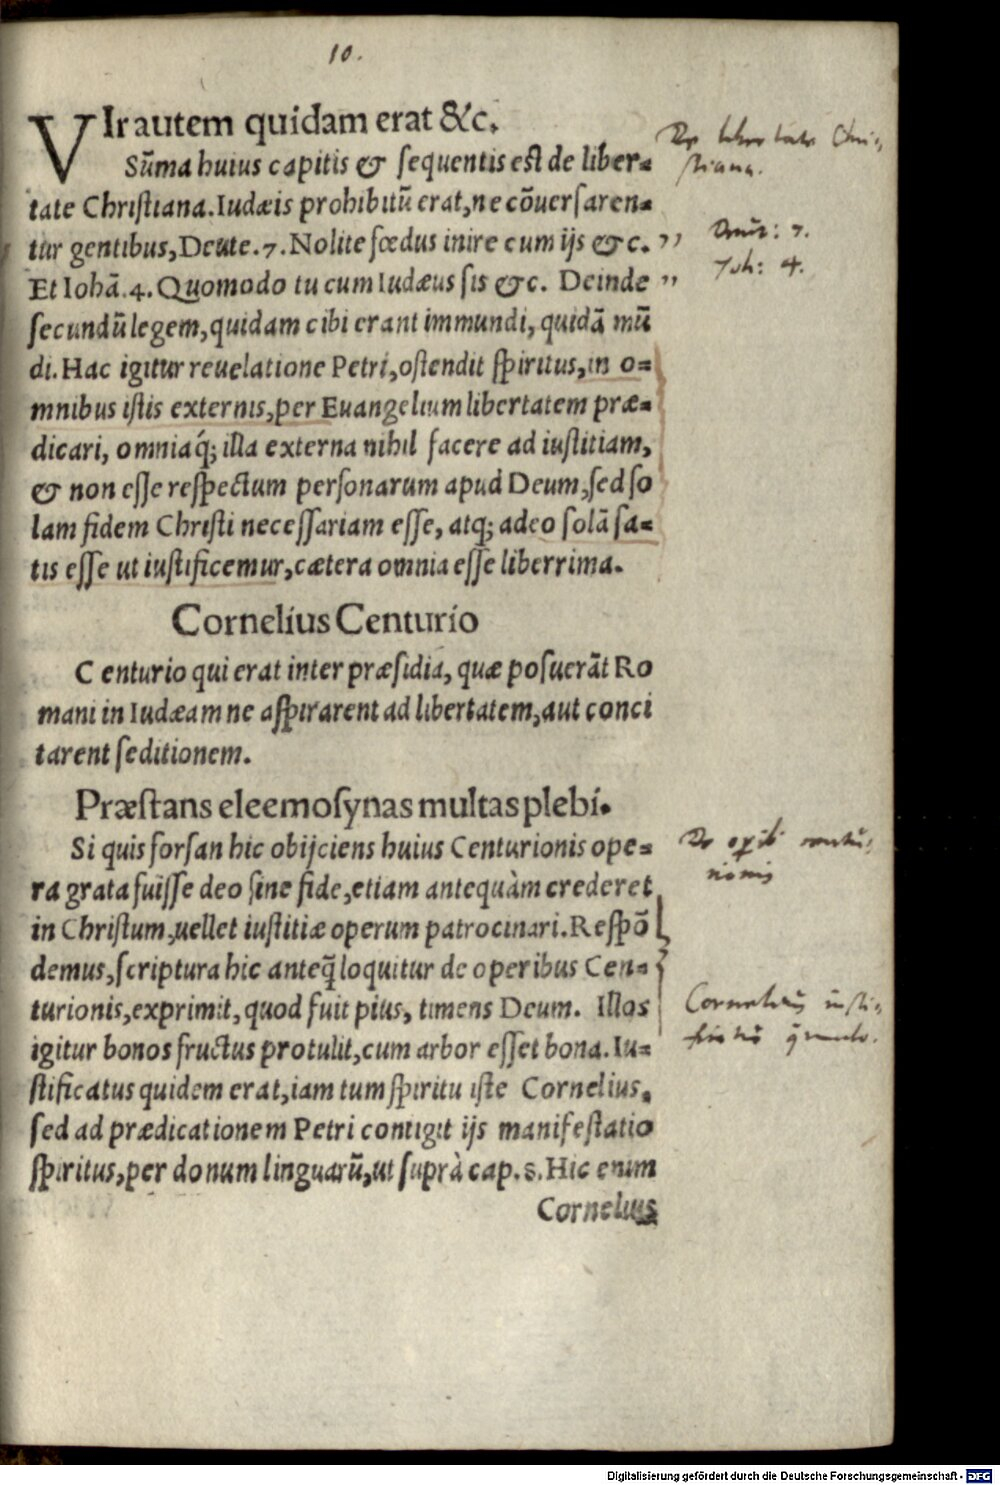 10.
VIr autem quidam erat &c.
Sūma huius capitis & ſequentis eſt de liber=
tate Chriſtiana. Iudæis prohibitū erat, ne cōuerſaren=
tur gentibus, Deute. 7. Nolite fœdus inire cum ijs &c. ,,
Et Iohā. 4. Quomodo tu cum Iudæus ſis &c. Deinde ,,
ſecundū legem, quidam cibi erant immundi, quidā mū
di. Hac igitur reuelatione Petri, oſtendit ſpiritus, in o=
mnibus iſtis externis, per Euangelium libertatem præ=
dicari, omniaq́; illa externa nihil facere ad iuſtitiam,
& non eſſe reſpectum perſonarum apud Deum, ſed ſo
lam fidem Chriſti neceſſariam eſſe, atq; adeo ſolā ſa=
tis eſſe ut iuſtificemur, cætera omnia eſſe liberrima.
Cornelius Centurio
Centurio qui erat inter præſidia, quæ poſuerāt Ro
mani in Iudæam ne aſpirarent ad libertatem, aut conci
tarent ſeditionem.
Præſtans eleemoſynas multas plebi.
Si quis forſan hic obijciens huius Centurionis ope=
ra grata fuiſſe deo ſine fide, etiam antequàm crederet
in Chriſtum, uellet iuſtitiæ operum patrocinari. Reſpō
demus, ſcriptura hic anteq̄ loquitur de operibus Cen=
turionis, exprimit, quod fuit pius, timens Deum. Illos
igitur bonos fructus protulit, cum arbor eſſet bona. Iu=
ſtificatus quidem erat, iam tum ſpiritu iſte Cornelius,
ſed ad prædicationem Petri contigit ijs manifeſtatio
ſpiritus, per donum linguarū, ut ſuprà cap. 8. Hic enim
Cornelius
De libertate Chri-
stiana.
7.
Joh: 4.
De
Cornelius iusti-
Digitalisierung gefördert durch die Deutsche Forschungsgemeinschaft - DFG